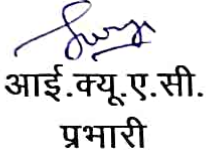 आई.क्यू.ए.सी.
प्रभारी